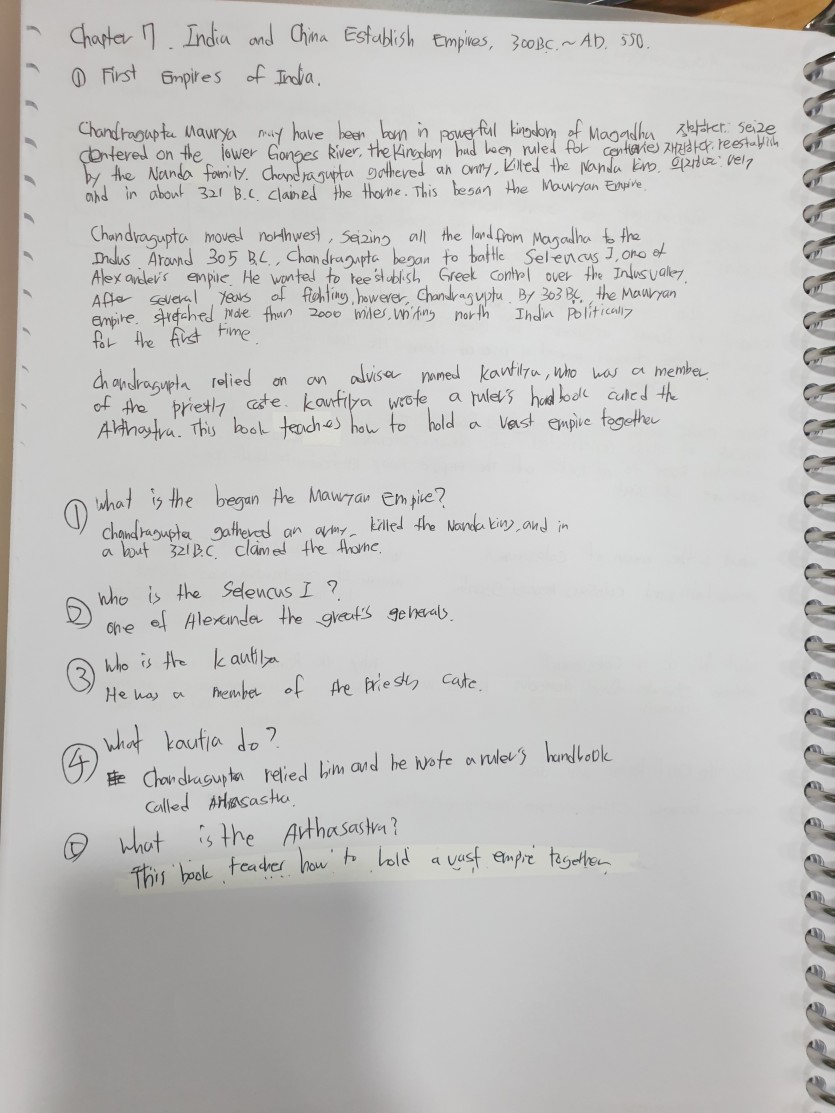 Chapter 7. India and China Establish Empires, 300BC.~AD. 550.
① First Empires of India.
Chandragupta Maurya may have been born in powerful kingdom of Magadha 장악하다: seize
Centered on the lower Ganges River. the Kingdom had been ruled for centuries 재정하다: reestablish
by the Nanda family. Chandragupta gathered an army, killed the Nanda king. 의지하다: rely
and in about 321 B.C. claimed the thorne. This began the Mauryan Empire.
Chandragupta moved northwest, Seizing all the land from Magadha to the
Indus. Around 305 B.C., Chandragupta began to battle Selencus I, one of
Alexander's empire. He wanted to reestablish Greek control over the Indus valley.
After several years of fighting, however, Chandragupta. By 303 B.C. the Mauryan
empire. stretched more than 2000 miles, uniting north India Politically
for the first time.
Chandragupta relied on an adviser named kautilya, who was a member.
of the priestly caste. kautilya wrote a ruler's handbook called the
Arthastra. This book teaches how to hold a vast empire together
① What is the began the Mauryan Empire?
Chandragupta gathered an army, killed the Nanda king, and in
about 321B.C. claimed the thorne.
② Who is the Selencus I ?
one of Alexander the great's generals.
③ Who is the kautilya
He was a member of the priestly cate.
④ What kautia do?
Chandragupta relied him and he wrote a ruler's handbook
called Athasastra.
⑤ What is the Arthasastra?
This book teaches how to hold a vast empire together